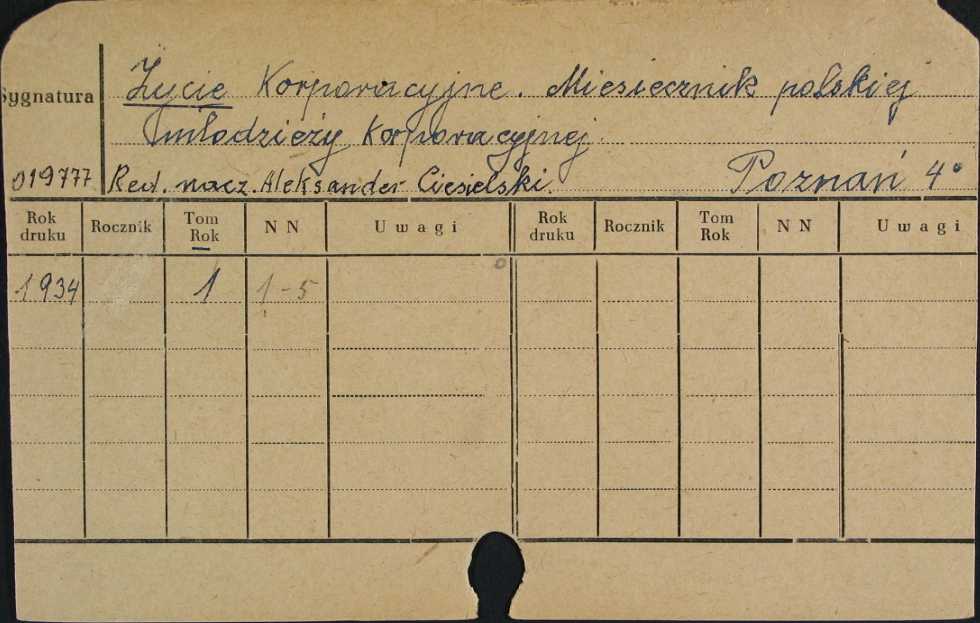 Sygnatura
Życie Korporacyjne. Miesięcznik polskiej
młodzieży Korporacyjnej.
019777 Red. nacz. Aleksander Ciesielski. Poznań 4°
Rok druku Rocznik Tom Rok NN Uwagi Rok druku Rocznik Tom Rok NN Uwagi
1934 1 1-5